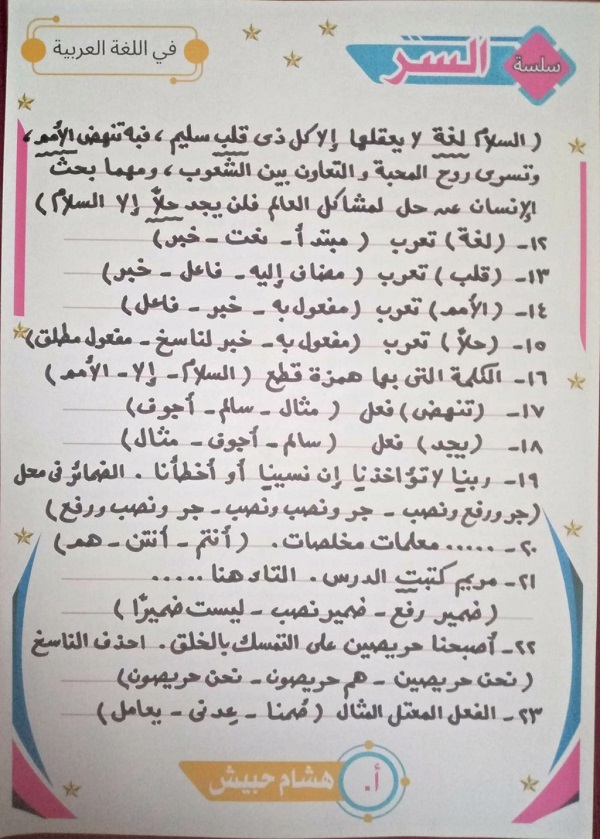 سلسة
السر
في اللغة العربية
( السلام لغة لا يعقلها إلا كل ذى قلب سليم ، فبه تنهض الأمم ،
وتسرى روح المحبة والتعاون بين الشعوب ، ومهما بحث
الإنسان عن حل لمشاكل العالم فلن يجد حلاً إلا السلام )
١٢- (لغة) تعرب ( مبتدأ - نعت - خبر)
١٣- (قلب) تعرب ( مضاف إليه - فاعل - خبر)
١٤- (الأمم) تعرب (مفعول به - خبر - فاعل)
١٥- (حلاً) تعرب (مفعول به - خبر لناسخ - مفعول مطلق)
١٦- الكلمة التى بها همزة قطع ( السلام - إلا - الأمم )
١٧- (تنهض) فعل ( مثال - سالم - أجوف)
١٨- (يجد) فعل ( سالم - أجوف - مثال)
١٩- ربنا لا تؤاخذنا إن نسينا أو أخطأنا . الضمائر فى محل
(جر ورفع ونصب - جر ونصب ونصب - جر ونصب ورفع)
٢٠- ..... معلمات مخلصات . ( أنتم - أنتن - هم )
٢١- مريم كتبت الدرس . التاء هنا .....
( ضمير رفع - ضمير نصب - ليست ضميرًا )
٢٢- أصبحنا حريصين على التمسك بالخلق . احذف الناسخ
( نحن حريصين - هم حريصون - نحن حريصون)
٢٣- الفعل المعتل المثال ( صُمنا - عِدنى - يعامل )
أ. هشام حبيش